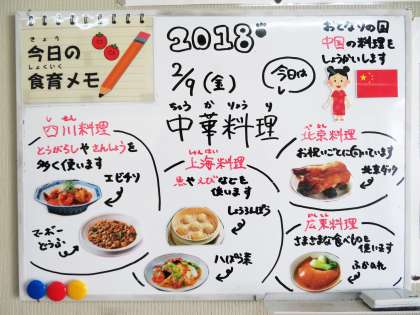 きょう
今日の
しょくいく
食育メモ
2018
2/9(金)
今日は
おとなりの国
中国の料理を
しょうかいします
ちゅうかりょうり
中華料理
しせん
四川料理
とうがらしやさんしょうを
多く使います
エビチリ
マーボー
どうふ
しゃんはい
上海料理
魚やえびなどを
使います
しょうろんぽう
八ぽう菜
ぺきん
北京料理
お祝いごとに向いています
北京ダック
かんとん
広東料理
さまざまな食べものを
使います
ふかひれ